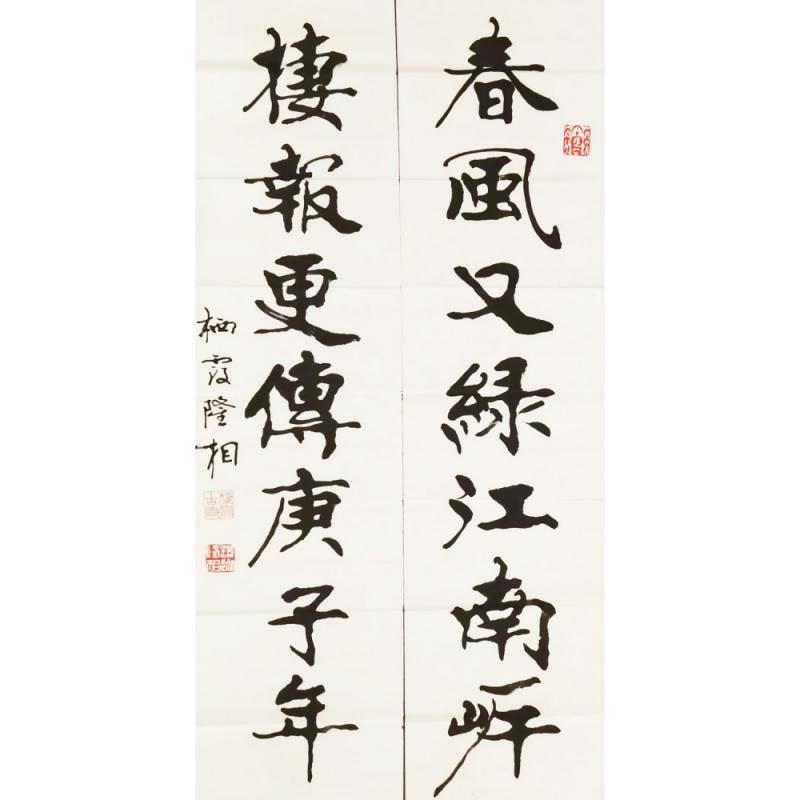 春風又緑江南岸
捷報更傳庚子年
栖霞隆相